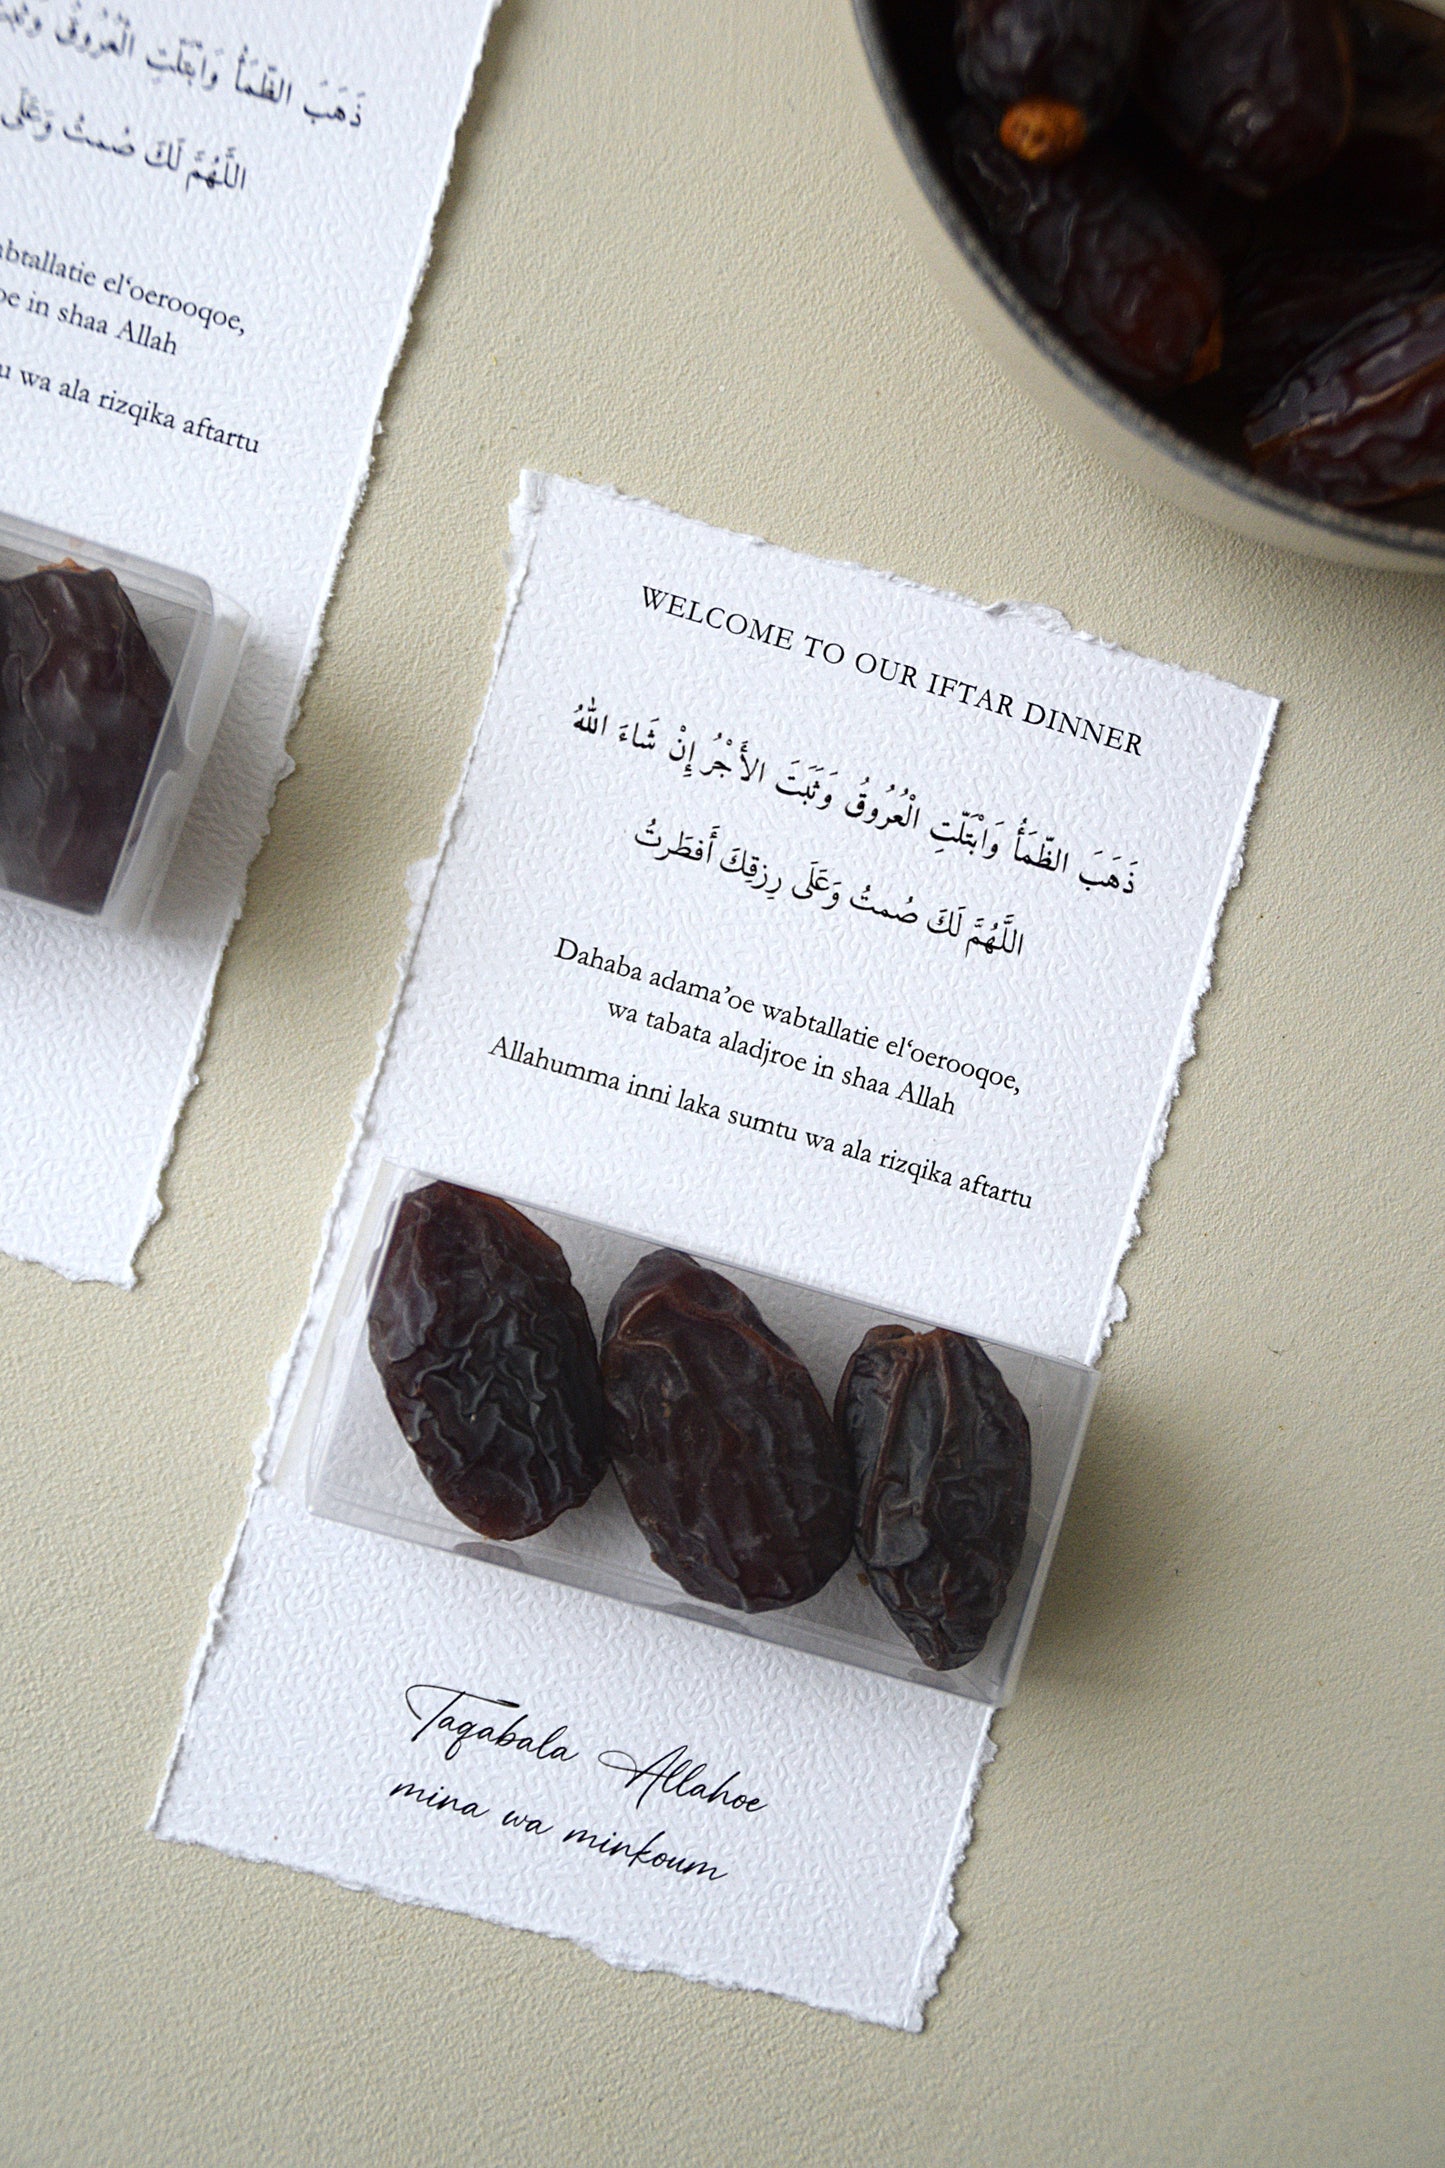 ذَهَبَ الظَّمَأُ وَابْتَلَّتِ الْعُرُوقُ
اللَّهُمَّ لَكَ صُمتُ وَعَلَى
wabtallatie el‘oerooqoe,
in shaa Allah
wa ala rizqika aftartu
WELCOME TO OUR IFTAR DINNER
ذَهَبَ الظَّمَأُ وَابْتَلَّتِ الْعُرُوقُ وَثَبَتَ الأَجْرُ إِنْ شَاءَ اللهُ
اللَّهُمَّ لَكَ صُمتُ وَعَلَى رِزقِكَ أَفطَرتُ
Dahaba adama’oe wabtallatie el‘oerooqoe,
wa tabata aladjroe in shaa Allah
Allahumma inni laka sumtu wa ala rizqika aftartu
Taqabala Allahoe
mina wa minkoum